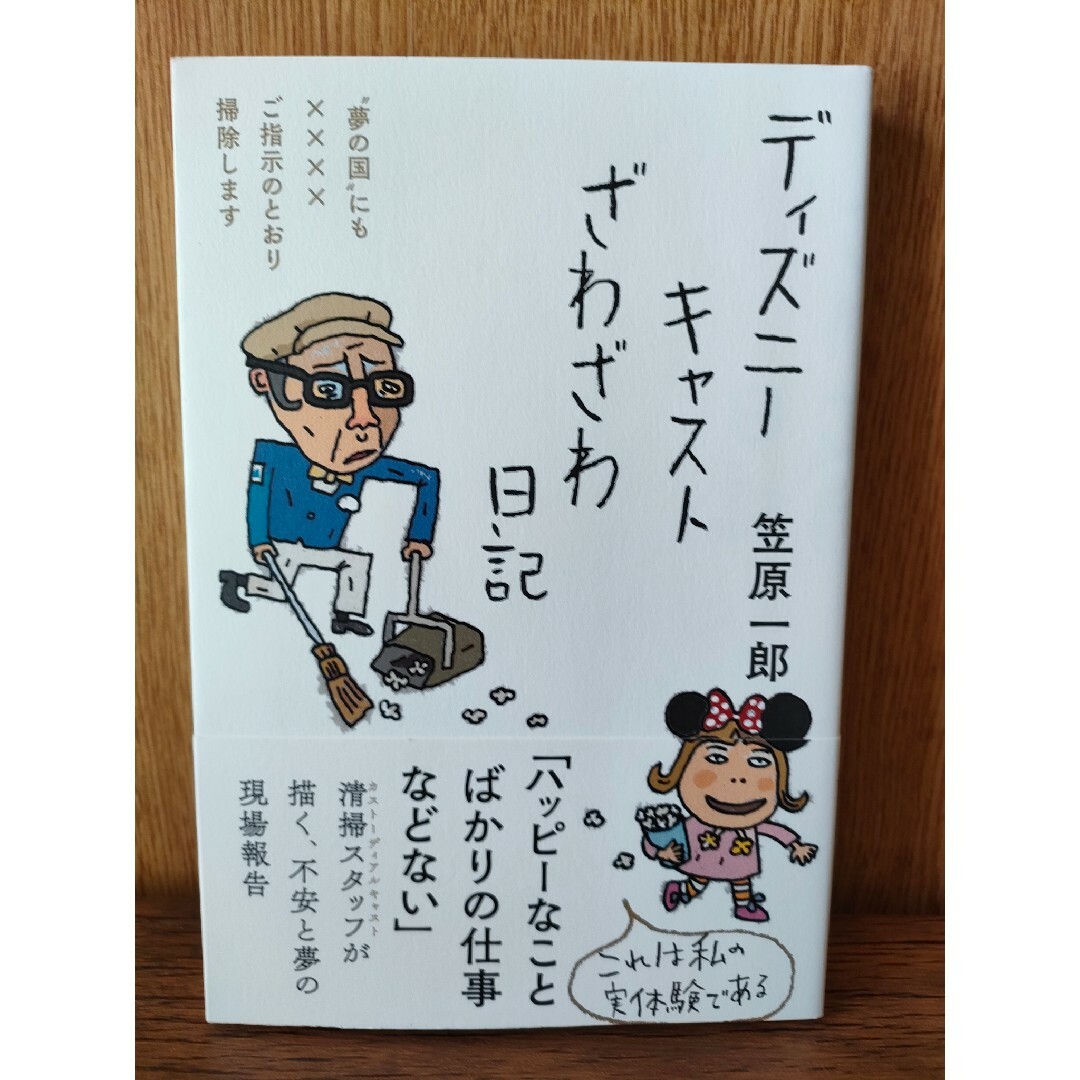 ディズニー
キャスト
ざわざわ
日記
笠原一郎
〝夢の国〟にも
××××
ご指示のとおり
掃除します
「ハッピーなこと
ばかりの仕事
などない」
カストーディアルキャスト
清掃スタッフが
描く、不安と夢の
現場報告
これは私の
実体験である